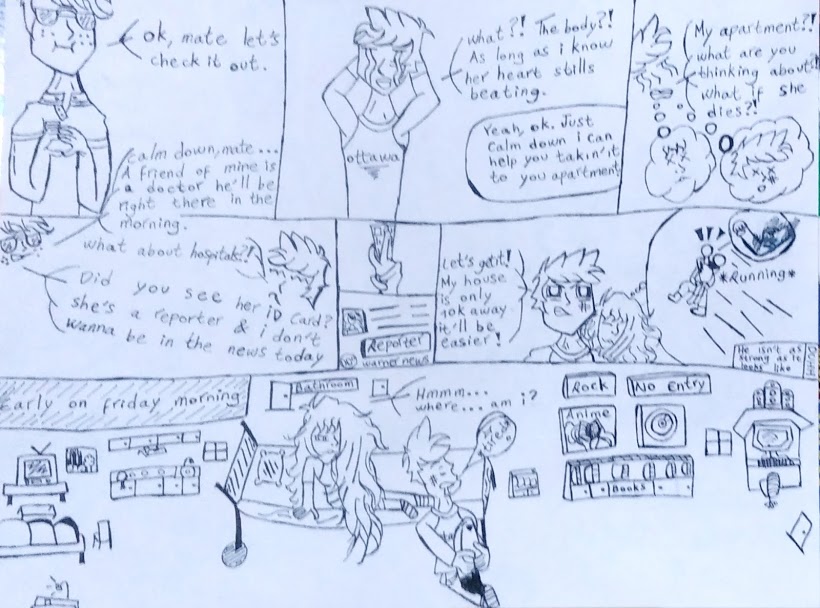 ok, mate let's
check it out.
what?! The body?!
As long as i know
her heart stills
beating.
ottawa
Yeah, ok. Just
calm down i can
help you takin' it
to you apartment
My apartment?!
what are you
thinking about?!
what if she
dies?!
calm down, mate...
A friend of mine is
a doctor he'll be
right there in the
morning.
what about hospitals?!
Did you see her iD card?
she's a reporter & i don't
wanna be in the news today
Reporter
warner news
Let's get it!
My house
is only
10k away
it'll be
easier!
*Running*
He isn't as
strong as he
looks like
Early on friday morning
Bathroom
Hmmm...
where... am i?
Rock
No Entry
Anime
Books